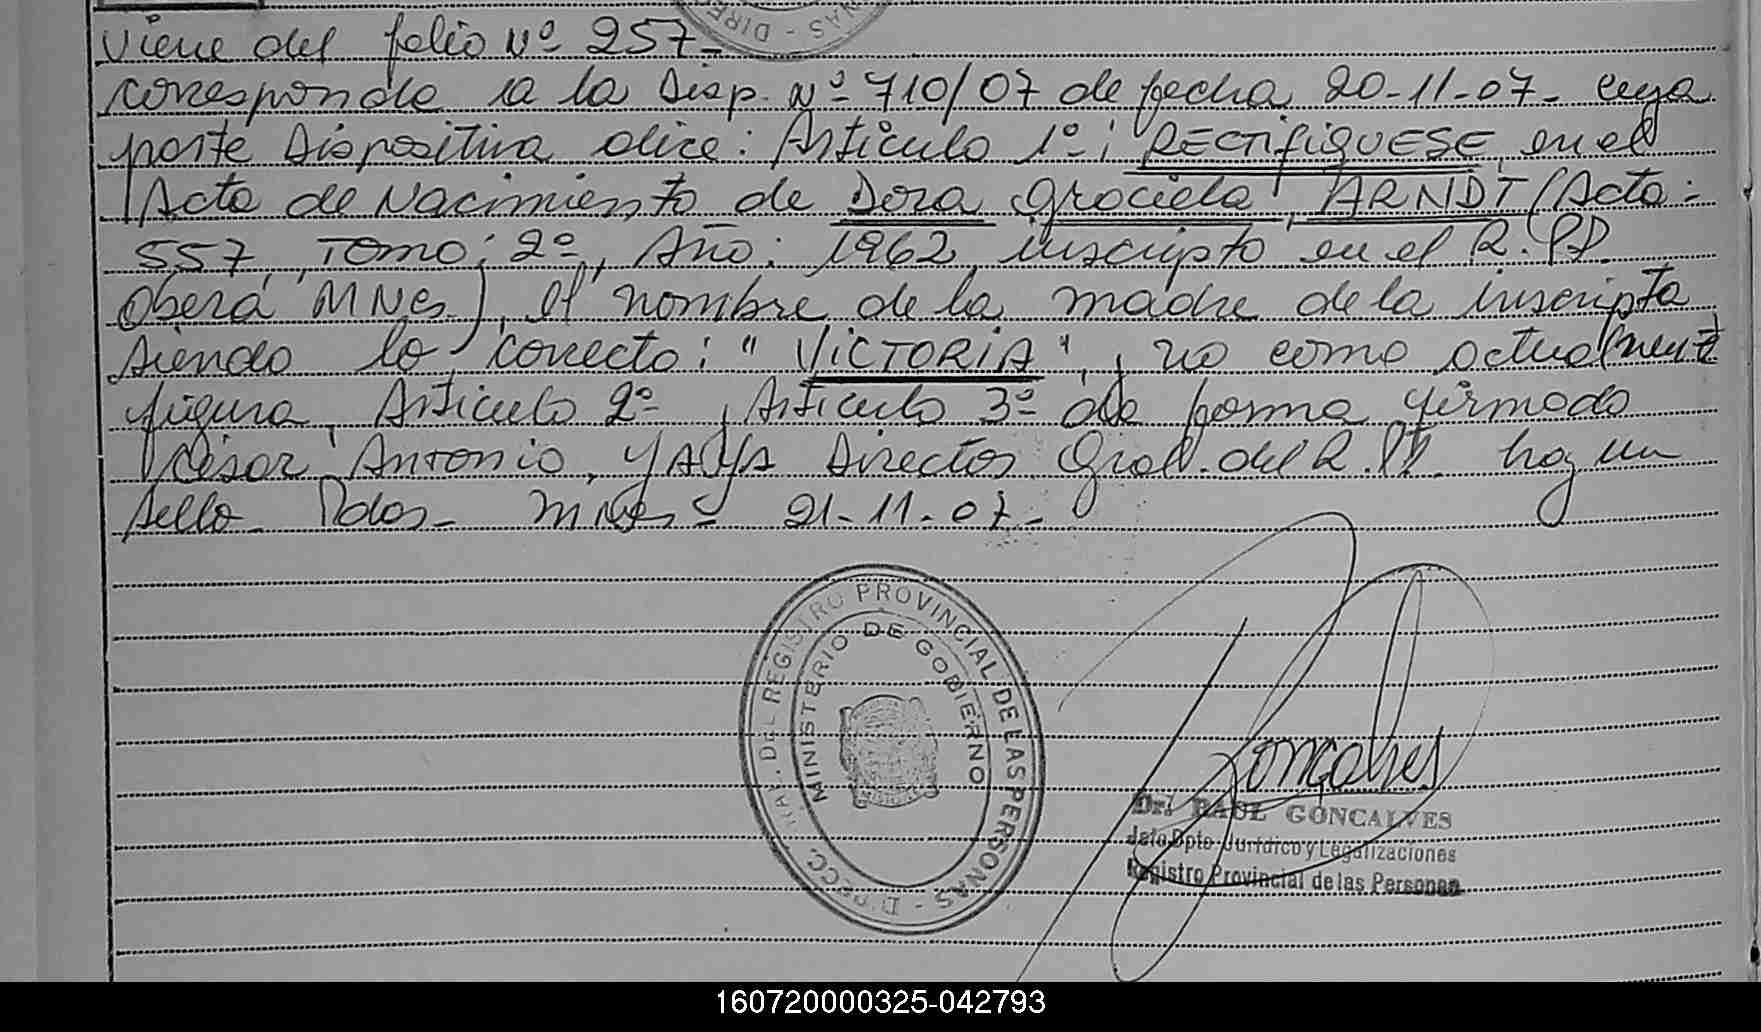 Viene del folio Nº 257-
corresponde a la Disp. Nº 710/07 de fecha 20-11-07- cuya
parte Dispositiva dice: Artículo 1º: RECTIFIQUESE, en el
Acta de Nacimiento de Dora Graciela ARNDT (Acta:
557, Tomo: 2º, Año: 1962, inscripto en el R.PP.
Oberá Mnes), el nombre de la madre de la inscripta
siendo lo correcto: "VICTORIA", no como actualmente
figura, Artículo 2º, Artículo 3º de forma firmado
César Antonio, Director Gral. del R.PP. hay un
sello- Pdas- Mnes- 21-11-07-
DIRECC. GRAL. DEL REGISTRO PROVINCIAL DE LAS PERSONAS -
MINISTERIO DE GOBIERNO
MISIONES
Goncalves
Dr. RAUL GONCALVES
Jefe Dpto Jurídico y Legalizaciones
Registro Provincial de las Personas
160720000325-042793